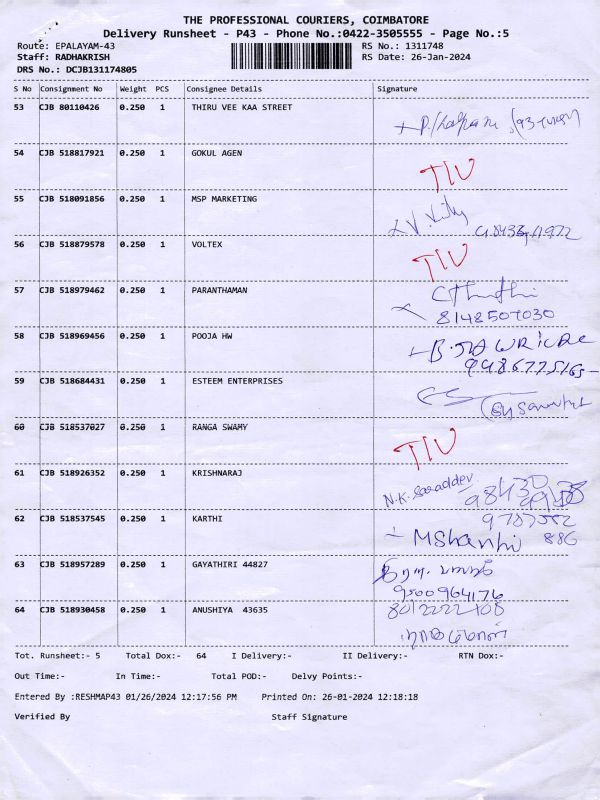 THE PROFESSIONAL COURIERS, COIMBATORE
Delivery Runsheet - P43 - Phone No.:0422-3505555 - Page No.:5
Route: EPALAYAM-43 RS No.: 1311748
Staff: RADHAKRISH RS Date: 26-Jan-2024
DRS No.: DCJB131174805
S No Consignment No Weight PCS Consignee Details Signature
53 CJB 80110426 0.250 1 THIRU VEE KAA STREET
54 CJB 518817921 0.250 1 GOKUL AGEN TIU
55 CJB 518091856 0.250 1 MSP MARKETING
56 CJB 518879578 0.250 1 VOLTEX TIU
57 CJB 518979462 0.250 1 PARANTHAMAN
8148507030
58 CJB 518969456 0.250 1 POOJA HW
9486775165
59 CJB 518684431 0.250 1 ESTEEM ENTERPRISES
60 CJB 518537027 0.250 1 RANGA SWAMY TIU
61 CJB 518926352 0.250 1 KRISHNARAJ N.K.
62 CJB 518537545 0.250 1 KARTHI MShanhi 886
63 CJB 518957289 0.250 1 GAYATHIRI 44827
9500964176
64 CJB 518930458 0.250 1 ANUSHIYA 43635
Tot. Runsheet:- 5 Total Dox:- 64 I Delivery:- II Delivery:- RTN Dox:-
Out Time:- In Time:- Total POD:- Delvy Points:-
Entered By :RESHMAP43 01/26/2024 12:17:56 PM Printed On: 26-01-2024 12:18:18
Verified By Staff Signature